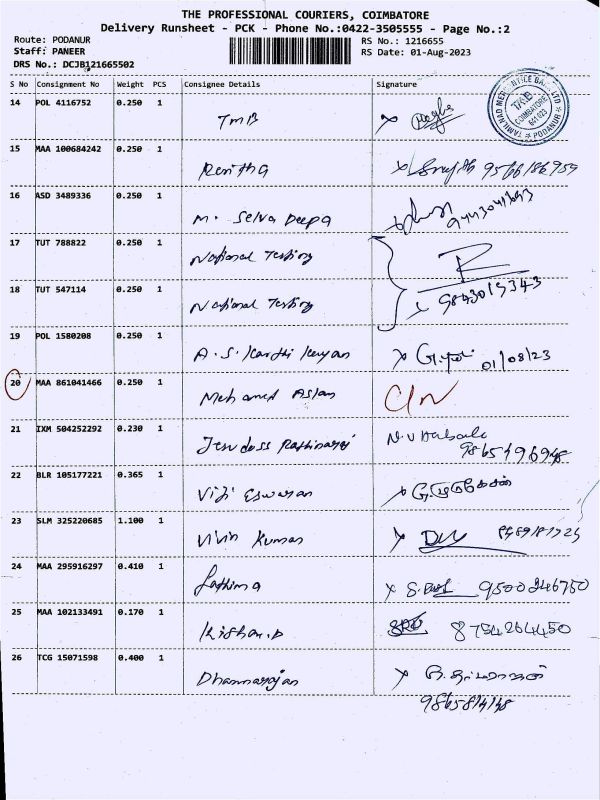 THE PROFESSIONAL COURIERS, COIMBATORE
Delivery Runsheet - PCK - Phone No.:0422-3505555 - Page No.:2
Route: PODANUR
RS No.: 1216655
Staff: PANEER
RS Date: 01-Aug-2023
DRS No.: DCJB121665502
S No Consignment No Weight PCS Consignee Details Signature
14 POL 4116752 0.250 1 TMB
TAMILNAD MERCANTILE BANK LTD
TMB
COIMBATORE
641 023
PODANUR
15 MAA 100684242 0.250 1
9566186959
16 ASD 3489336 0.250 1 M. Selva Deepa
17 TUT 788822 0.250 1 National Testing
18 TUT 547114 0.250 1 National Testing
9843019343
19 POL 1580208 0.250 1 A. S.
01/08/23
20 MAA 861041466 0.250 1 Mohamed Aslam
21 IXM 504252292 0.230 1
22 BLR 105177221 0.365 1 Viji Eswaran
23 SLM 325220685 1.100 1 Vivin Kumar
24 MAA 295916297 0.410 1 Fathima
9500246750
25 MAA 102133491 0.170 1 Kishan.D
8754264450
26 TCG 15071598 0.400 1 Dhanarajan